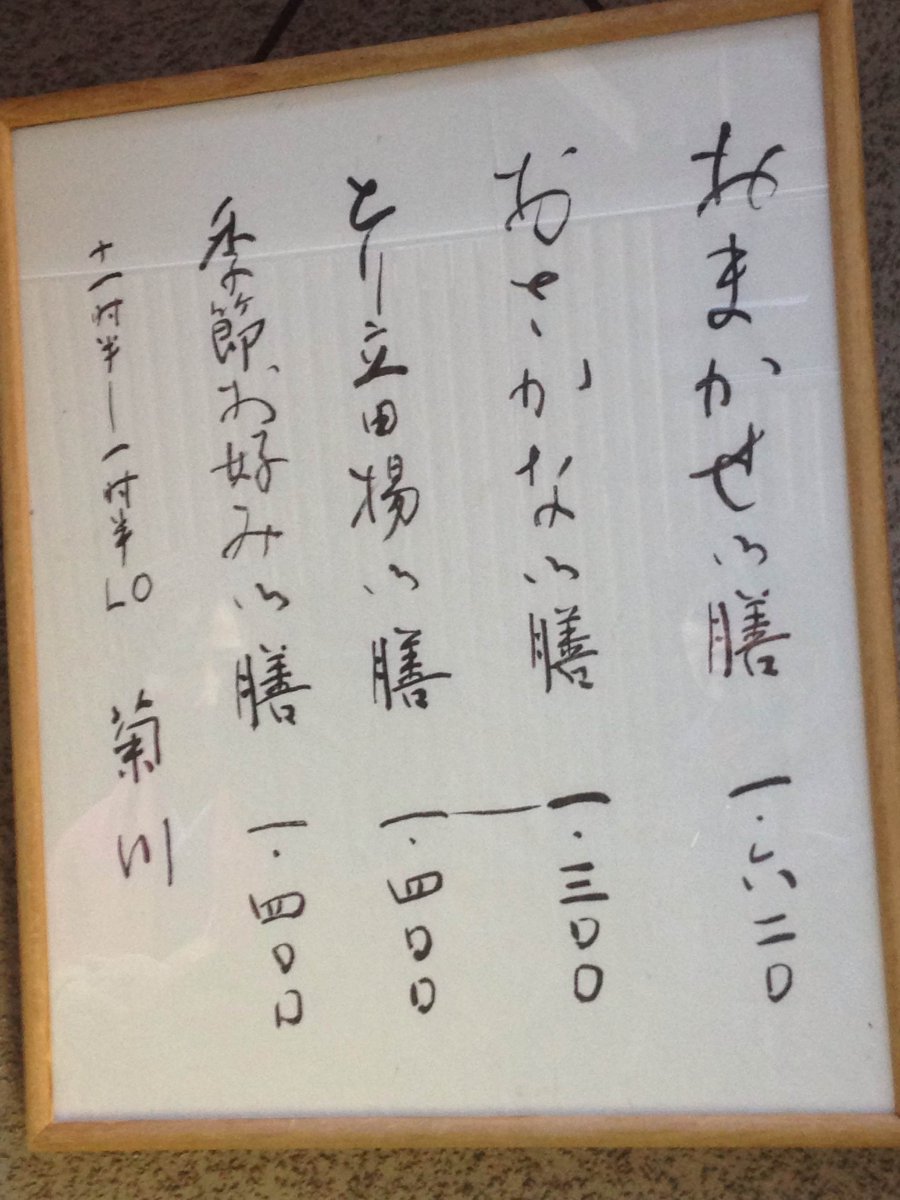 おまかせ御膳 一・六二〇
おさかな御膳 一・三〇〇
とり立田揚御膳 一・四〇〇
季節お好み御膳 一・四〇〇
十一時半ー一時半LO 菊川